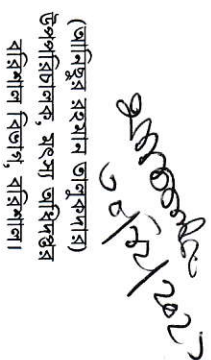 ১০/১২/২০২
(আনিছুর রহমান তালুকদার)
উপপরিচালক, মৎস্য অধিদপ্তর
বরিশাল বিভাগ, বরিশাল।